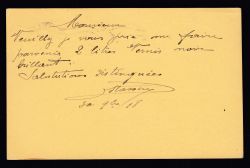 Monsieur
Veuillez je vous prie me faire
parvenir 2 litres Vernis noir
brillant.
Salutations distinguées